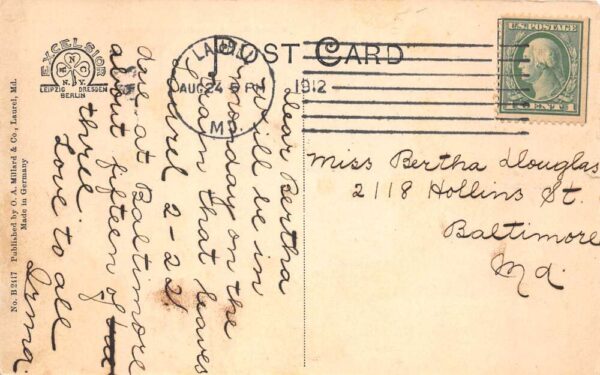 POST CARD
EXCELSIOR
N
M C
N.Y.
LEIPZIG DRESDEN
BERLIN
LAUREL
AUG 24 5 PM
MD.
1912
U.S. POSTAGE
No. B 2417 Published by G. A. Millard & Co., Laurel, Md.
Made in Germany
Dear Bertha
I will be in
monday on the
train that leaves
Laurel 2-22
due at Baltimore
about fifteen of
three.
Love to all
Irma.
Miss Bertha Douglas
2118 Hollins St.
Baltimore
Md.